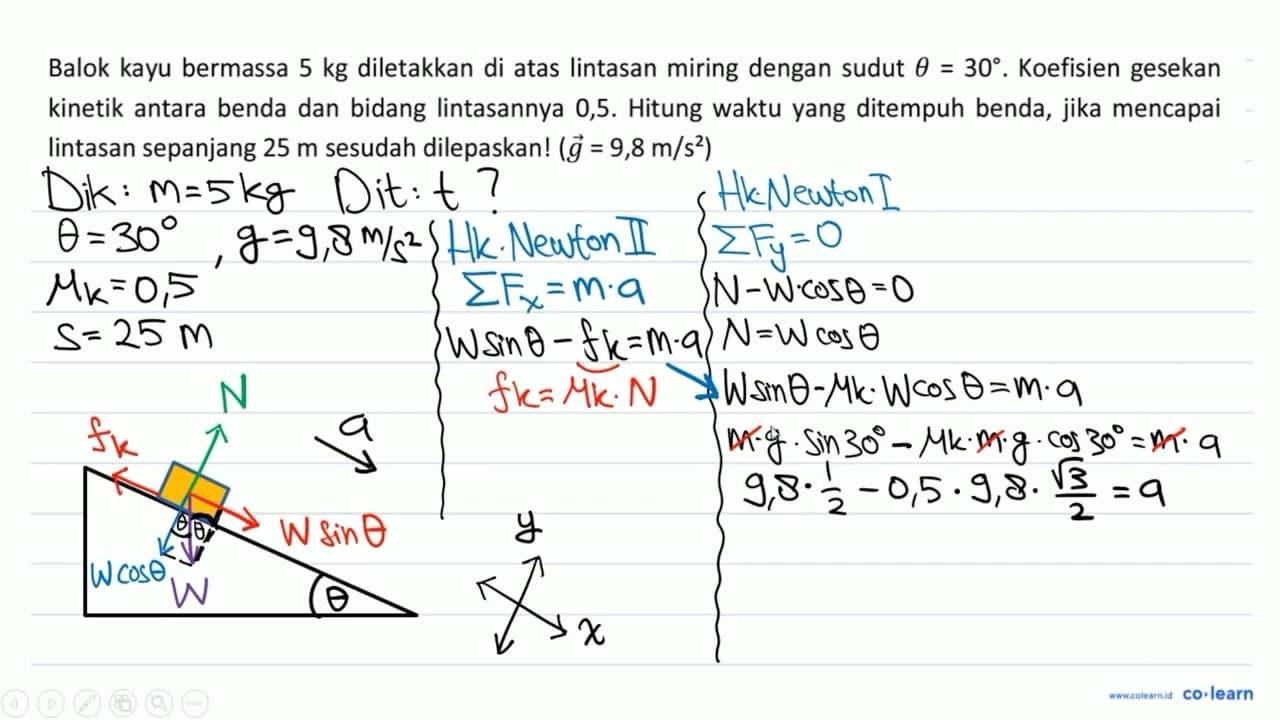 Balok kayu bermassa 5 kg diletakkan di atas lintasan miring dengan sudut θ = 30°. Koefisien gesekan
kinetik antara benda dan bidang lintasannya 0,5. Hitung waktu yang ditempuh benda, jika mencapai
lintasan sepanjang 25 m sesudah dilepaskan! (g⃗ = 9,8 m/s²)
Dik: m=5kg Dit: t ?
θ=30°, g=9,8 m/s²
μk=0,5
s=25 m
Hk. Newton II
ΣFx=m·a
W sin θ - fk=m·a
fk=μk·N
Hk. Newton I
ΣFy=0
N-W·cosθ=0
N=W cosθ
W sinθ-μk·W cosθ=m·a
m·g·sin30°-μk·m·g·cos30°=m·a
9,8·1/2-0,5·9,8·√3/2=a
N
fk
a
θ θ
W sinθ
W cosθ
W
θ
y
x
www.colearn.id co·learn